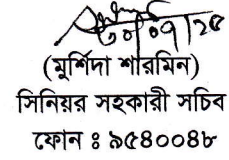 ৩০/০৭/২৫
(মুর্শিদা শারমিন)
সিনিয়র সহকারী সচিব
ফোন ঃ ৯৫৪০০৪৮